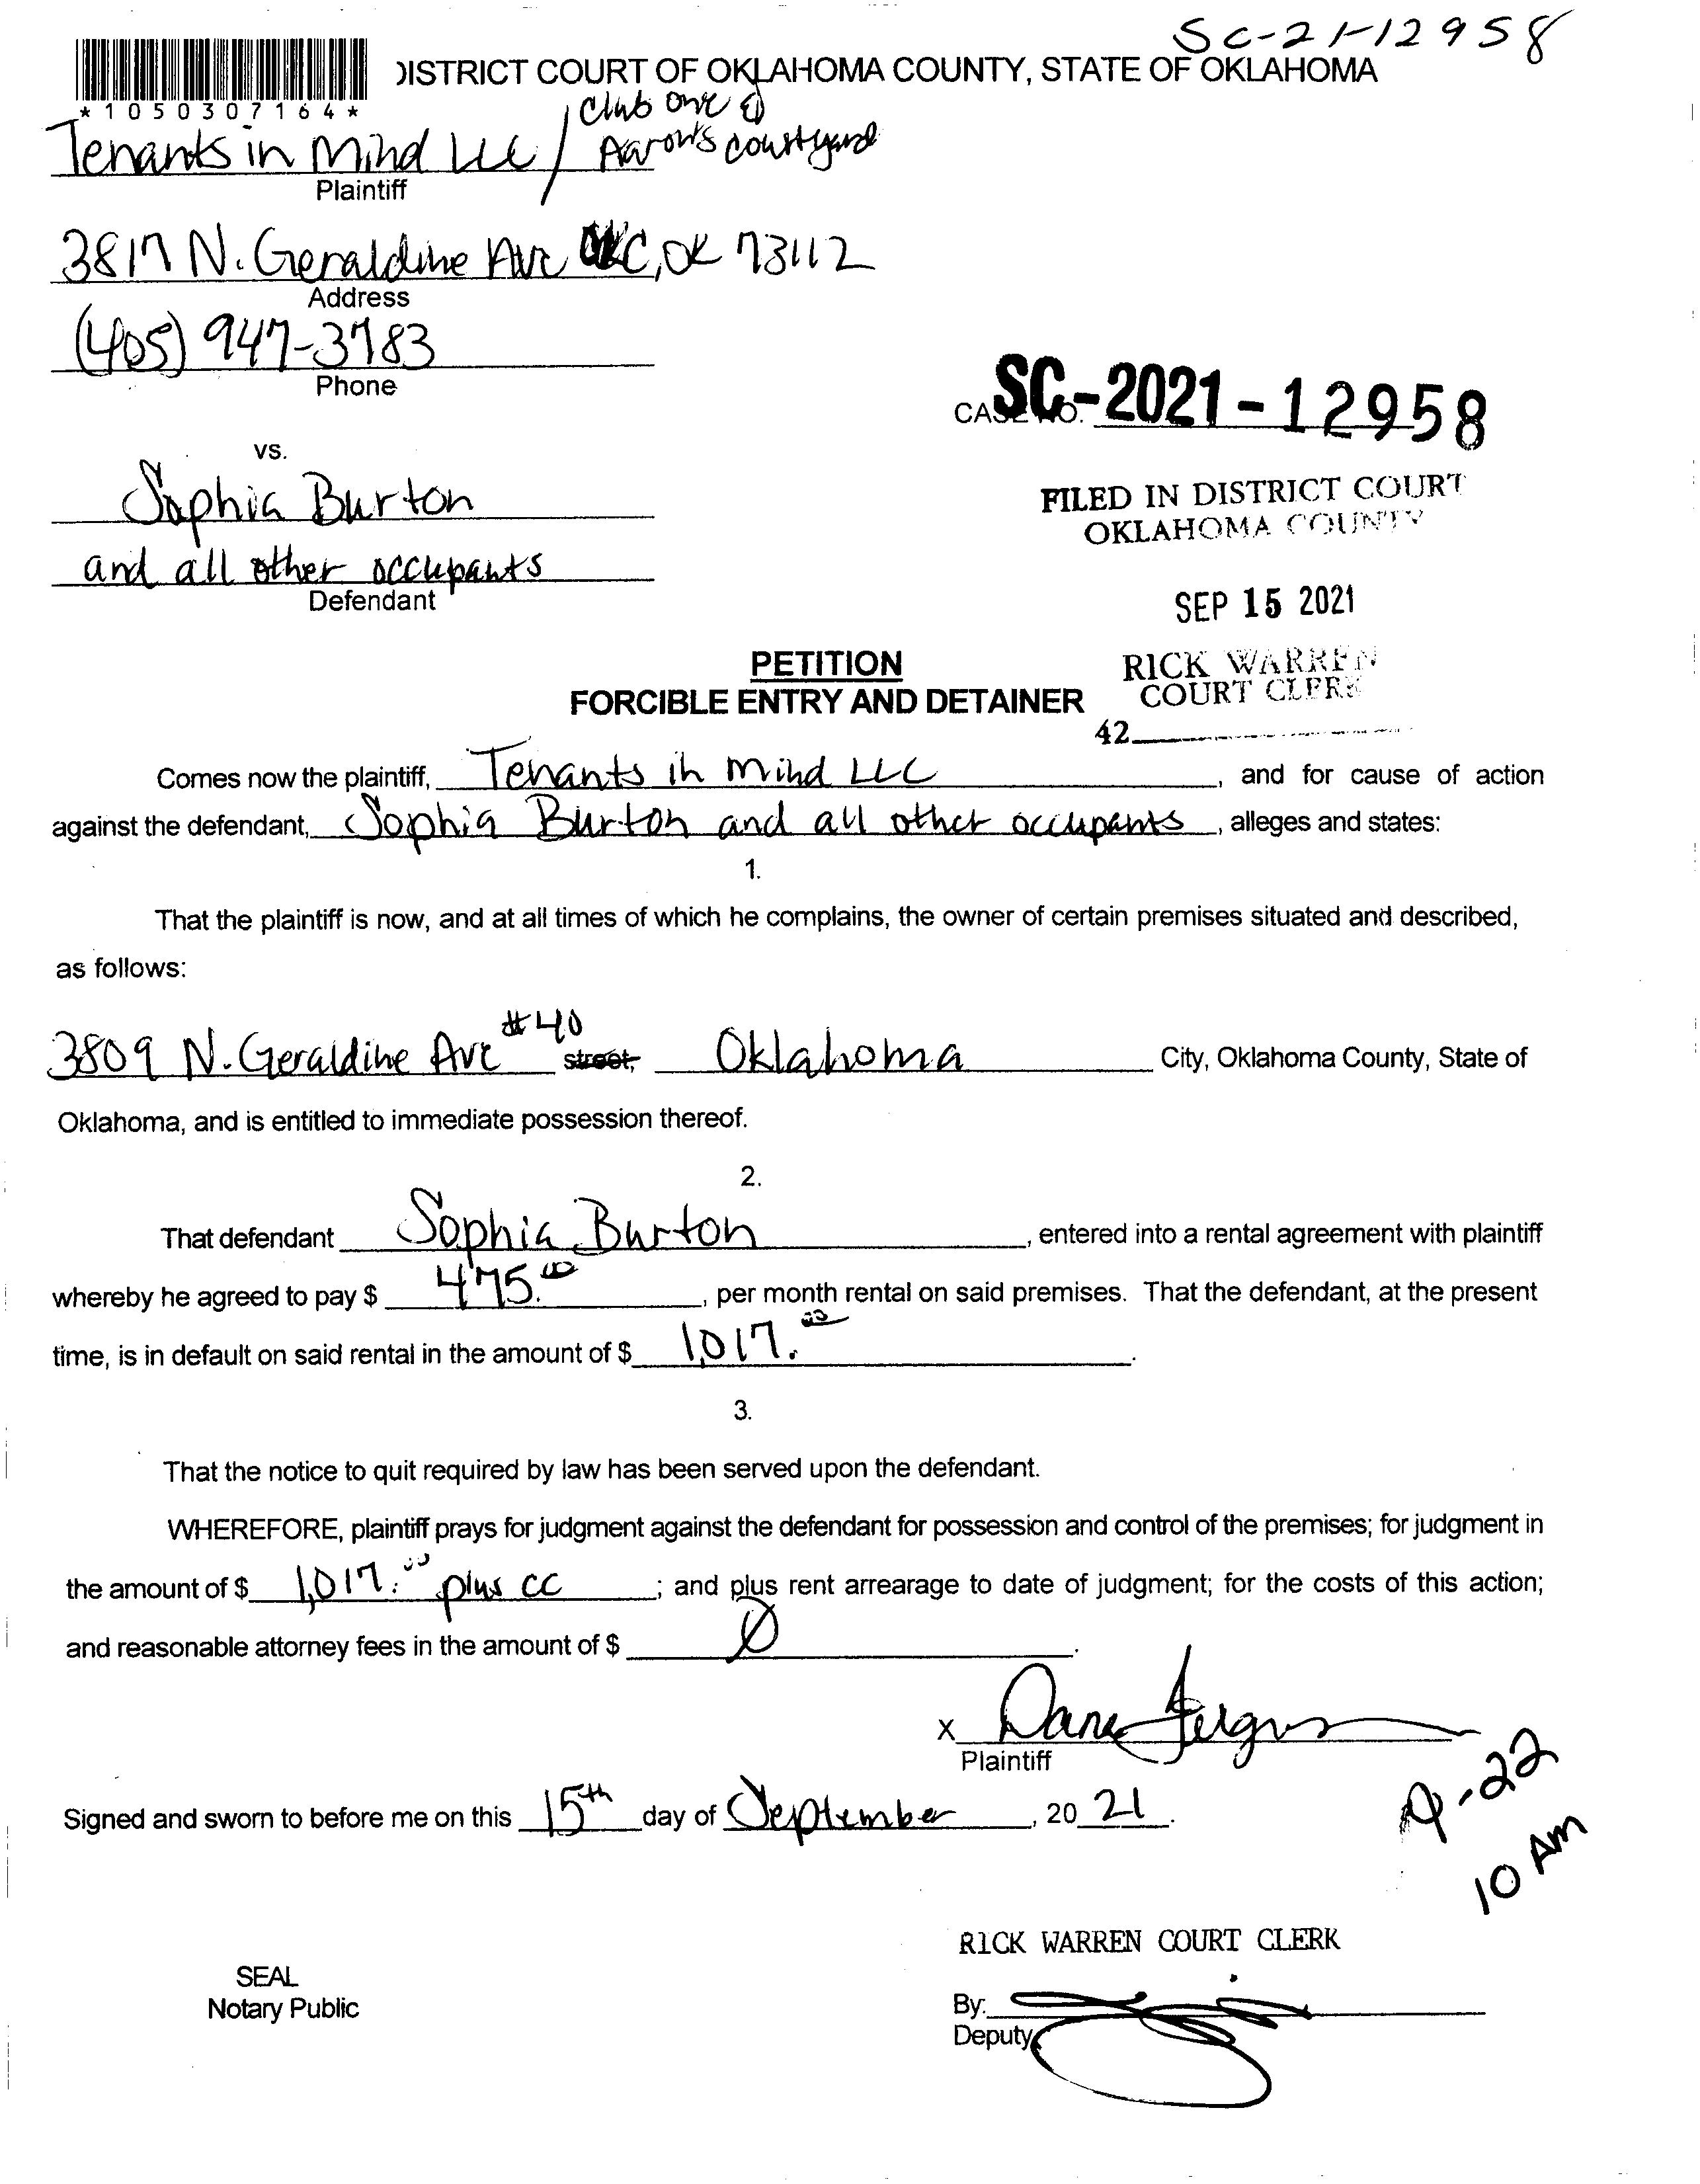 SC-21-12958
DISTRICT COURT OF OKLAHOMA COUNTY, STATE OF OKLAHOMA
*1050307164*
Club One @
Tenants in Mind LLC / Aaron's Courtyard
Plaintiff
3817 N. Geraldine Ave OKC, OK 73112
Address
(405) 947-3783
Phone
CASE NO. SC-2021-12958
vs.
Sophia Burton
and all other occupants
Defendant
FILED IN DISTRICT COURT
OKLAHOMA COUNTY
SEP 15 2021
RICK WARREN
COURT CLERK
42
PETITION
FORCIBLE ENTRY AND DETAINER
Comes now the plaintiff, Tenants in Mind LLC, and for cause of action
against the defendant, Sophia Burton and all other occupants, alleges and states:
1.
That the plaintiff is now, and at all times of which he complains, the owner of certain premises situated and described,
as follows:
3809 N. Geraldine Ave #40 street, Oklahoma City, Oklahoma County, State of
Oklahoma, and is entitled to immediate possession thereof.
2.
That defendant Sophia Burton, entered into a rental agreement with plaintiff
whereby he agreed to pay $ 475.00, per month rental on said premises. That the defendant, at the present
time, is in default on said rental in the amount of $ 1,017.00.
3.
That the notice to quit required by law has been served upon the defendant.
WHEREFORE, plaintiff prays for judgment against the defendant for possession and control of the premises; for judgment in
the amount of $ 1,017.00 plus CC; and plus rent arrearage to date of judgment; for the costs of this action;
and reasonable attorney fees in the amount of $ Ø.
X
Plaintiff
9-22
10 AM
Signed and sworn to before me on this 15th day of September, 20 21.
RICK WARREN COURT CLERK
SEAL
Notary Public
By:
Deputy